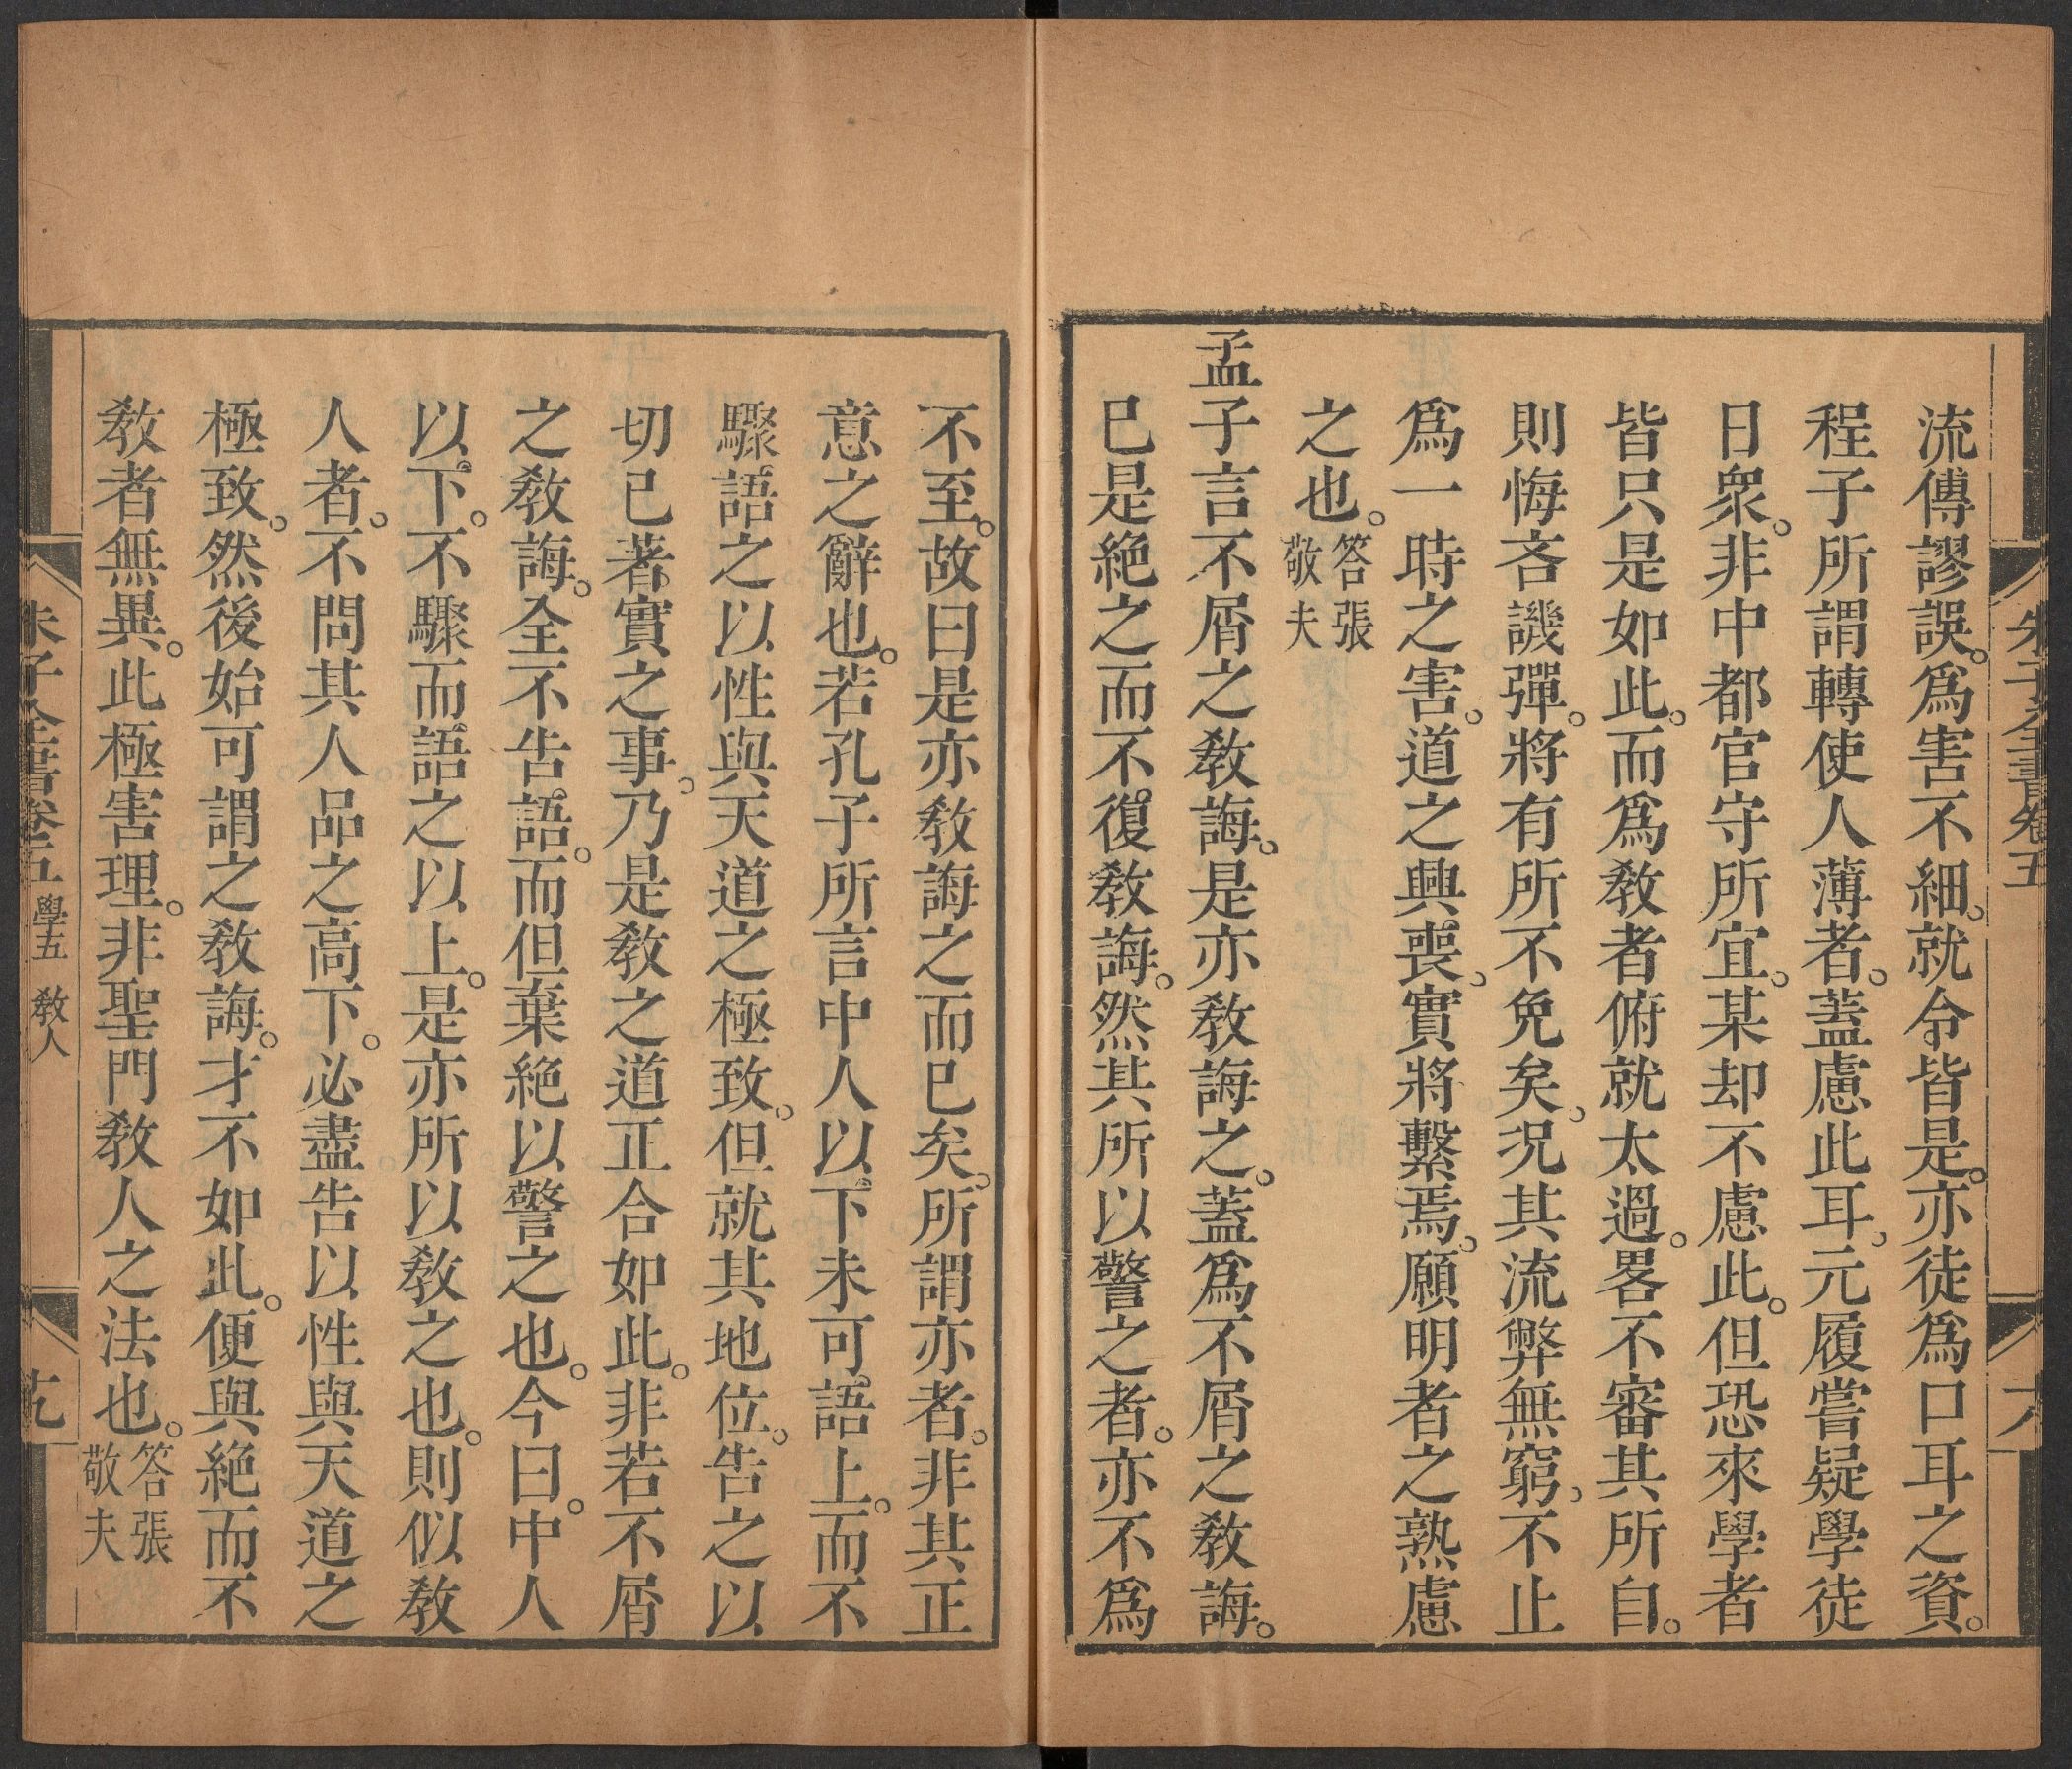 朱子全書卷五
六
流傳謬誤。爲害不細。就令皆是。亦徒爲口耳之資。
程子所謂轉使人薄者。蓋慮此耳。元履嘗疑學徒
日衆。非中都官守所宜。某却不慮此。但恐來學者
皆只是如此。而爲敎者俯就太過。畧不審其所自。
則悔吝譏彈。將有所不免矣。况其流弊無窮。不止
爲一時之害。道之興喪。實將繫焉。願明者之熟慮
之也。答張敬夫
孟子言不屑之敎誨。是亦敎誨之。蓋爲不屑之敎誨。
已是絶之而不復敎誨。然其所以警之者。亦不爲
不至。故曰是亦敎誨之而已矣。所謂亦者。非其正
意之辭也。若孔子所言中人以下未可語上。而不
驟語之以性與天道之極致。但就其地位。告之以
切已著實之事。乃是敎之道正合如此。非若不屑
之敎誨。全不告語。而但棄絶以警之也。今曰。中人
以下。不驟而語之以上。是亦所以敎之也。則似敎
人者。不問其人品之高下。必盡告以性與天道之
極致。然後始可謂之敎誨。才不如此。便與絶而不
敎者無異。此極害理。非聖門敎人之法也。答張敬夫
朱子全書卷五 學五 敎人